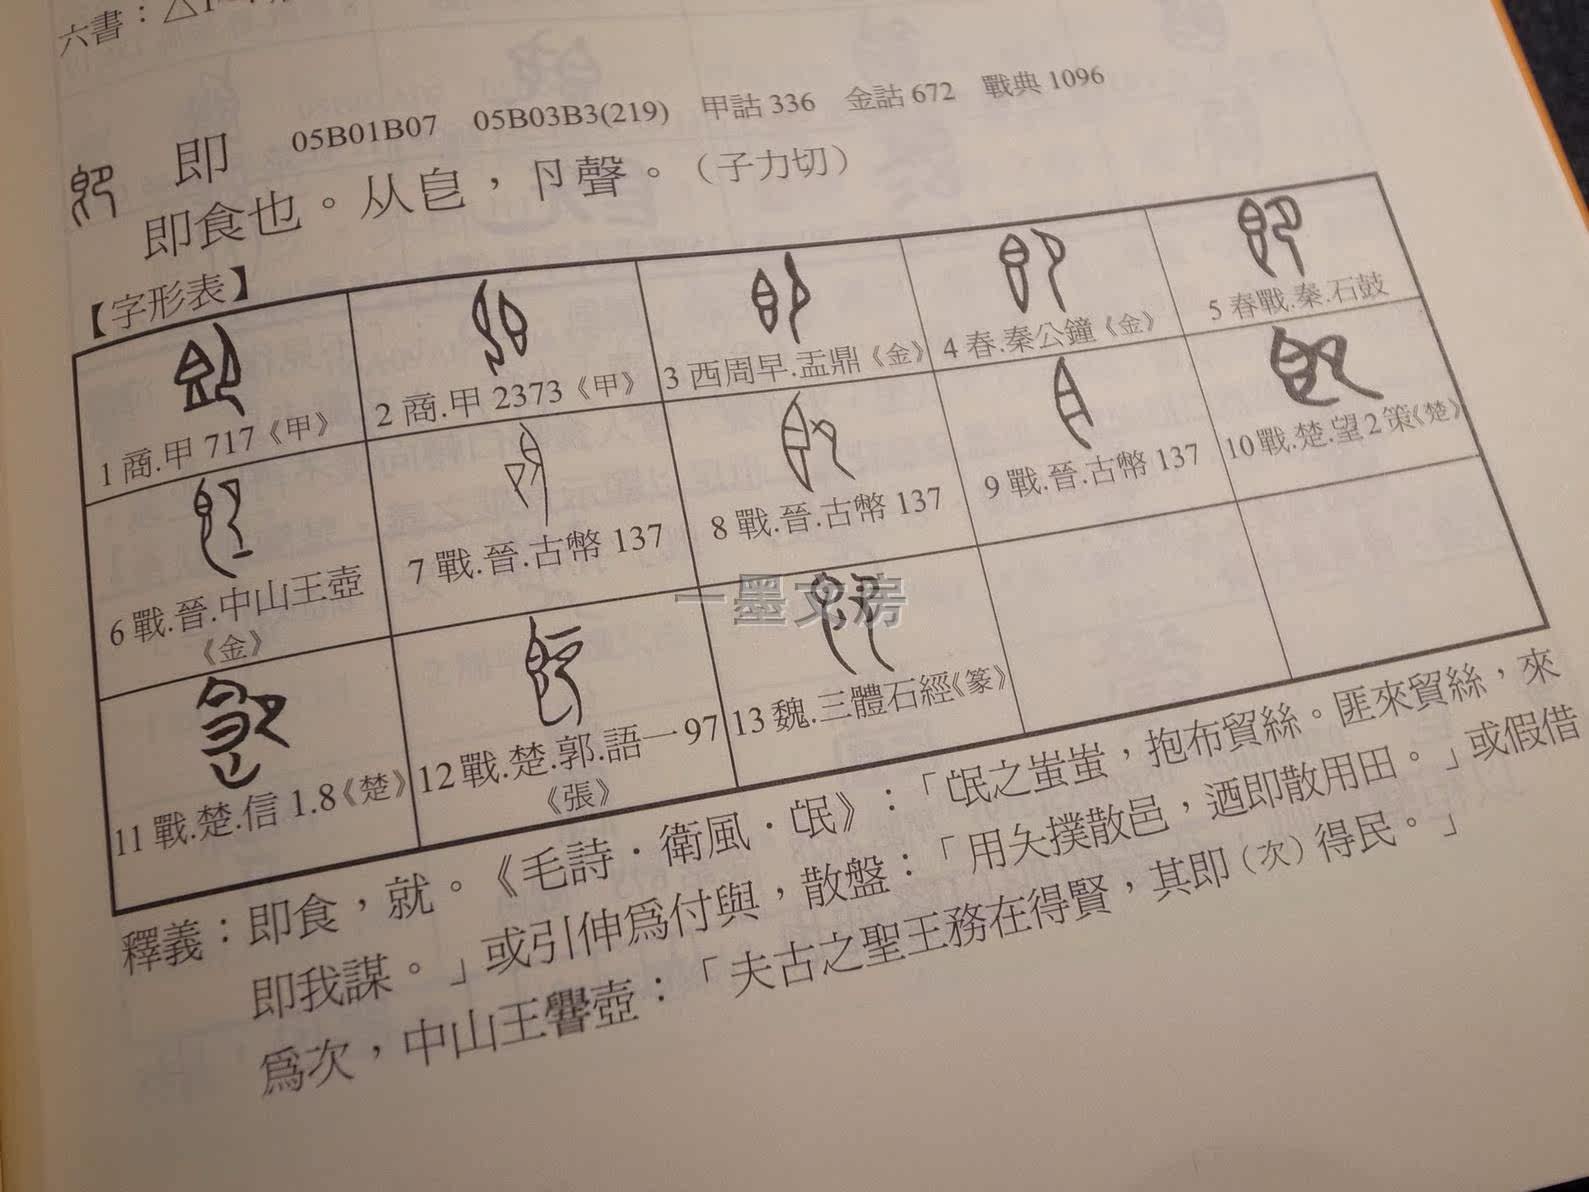 六書：△
即 05B01B07 05B03B3(219) 甲詁 336 金詁 672 戰典 1096
即食也。从皀，卪聲。（子力切）
【字形表】
1 商.甲 717《甲》
2 商.甲 2373《甲》
3 西周早.盂鼎《金》
4 春.秦公鐘《金》
5 春戰.秦.石鼓
6 戰.晉.中山王壺
《金》
7 戰.晉.古幣 137
8 戰.晉.古幣 137
9 戰.晉.古幣 137
10 戰.楚.望 2 策《楚》
11 戰.楚.信 1.8《楚》
12 戰.楚.郭.語一 97
《張》
13 魏.三體石經《篆》
一墨文房
釋義：即食，就。《毛詩．衛風．氓》：「氓之蚩蚩，抱布貿絲。匪來貿絲，來
即我謀。」或引伸爲付與，散盤：「用夨撲散邑，迺即散用田。」或假借
爲次，中山王壺：「夫古之聖王務在得賢，其即（次）得民。」